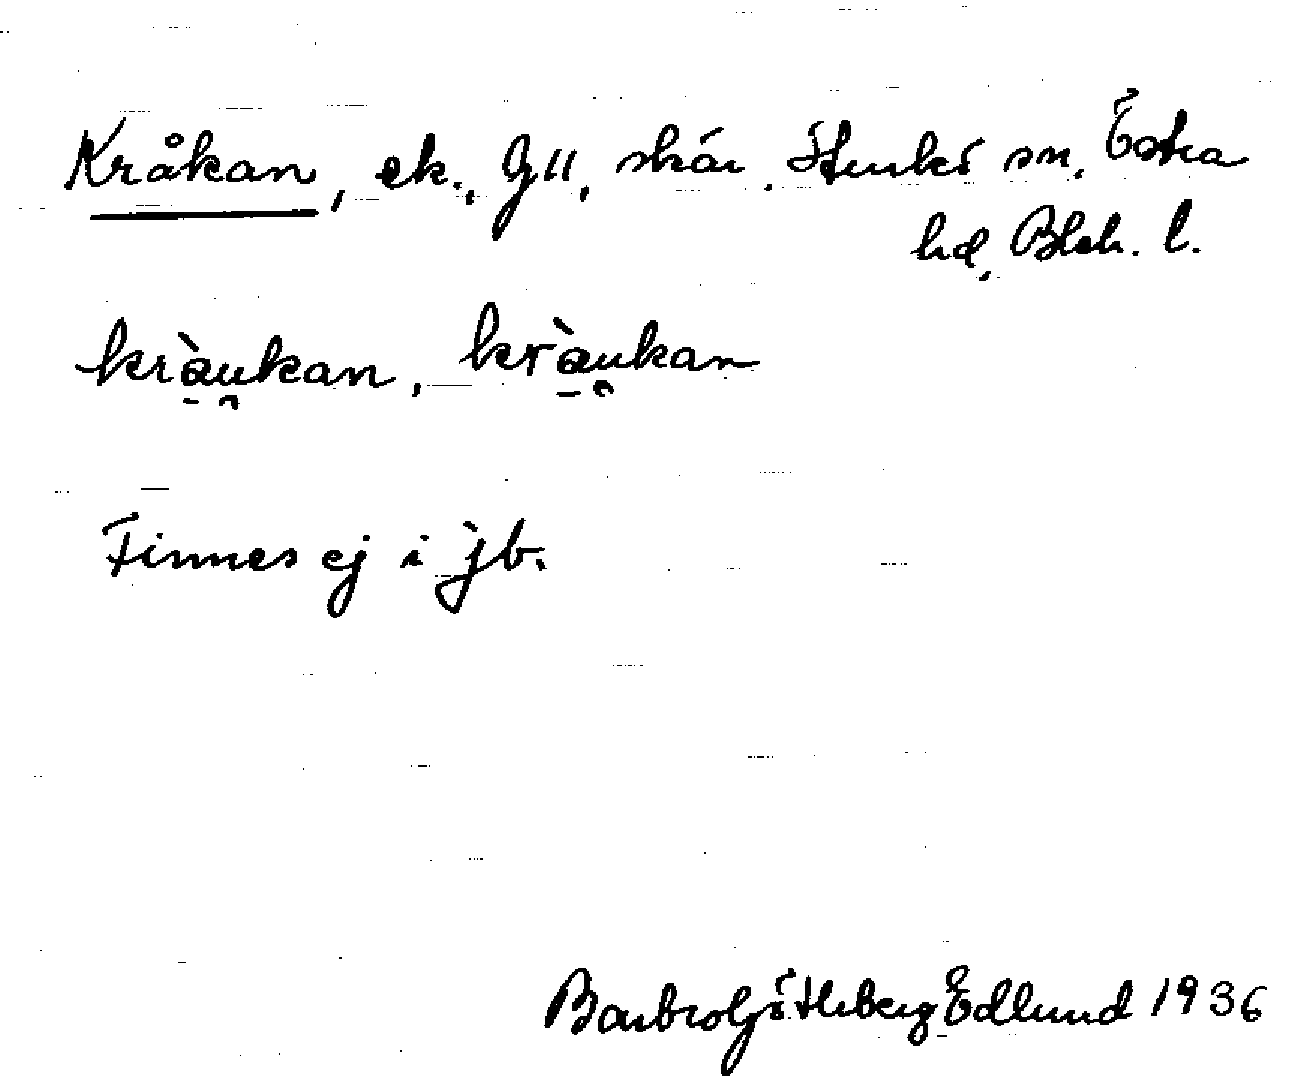 Kråkan, ek., G11, skär. Sturkö sn, Östra
hd, Blek. l.
kràu̯kan, kràu̯kan
Finnes ej i jb.
Barbro Götleberg Edlund 1936